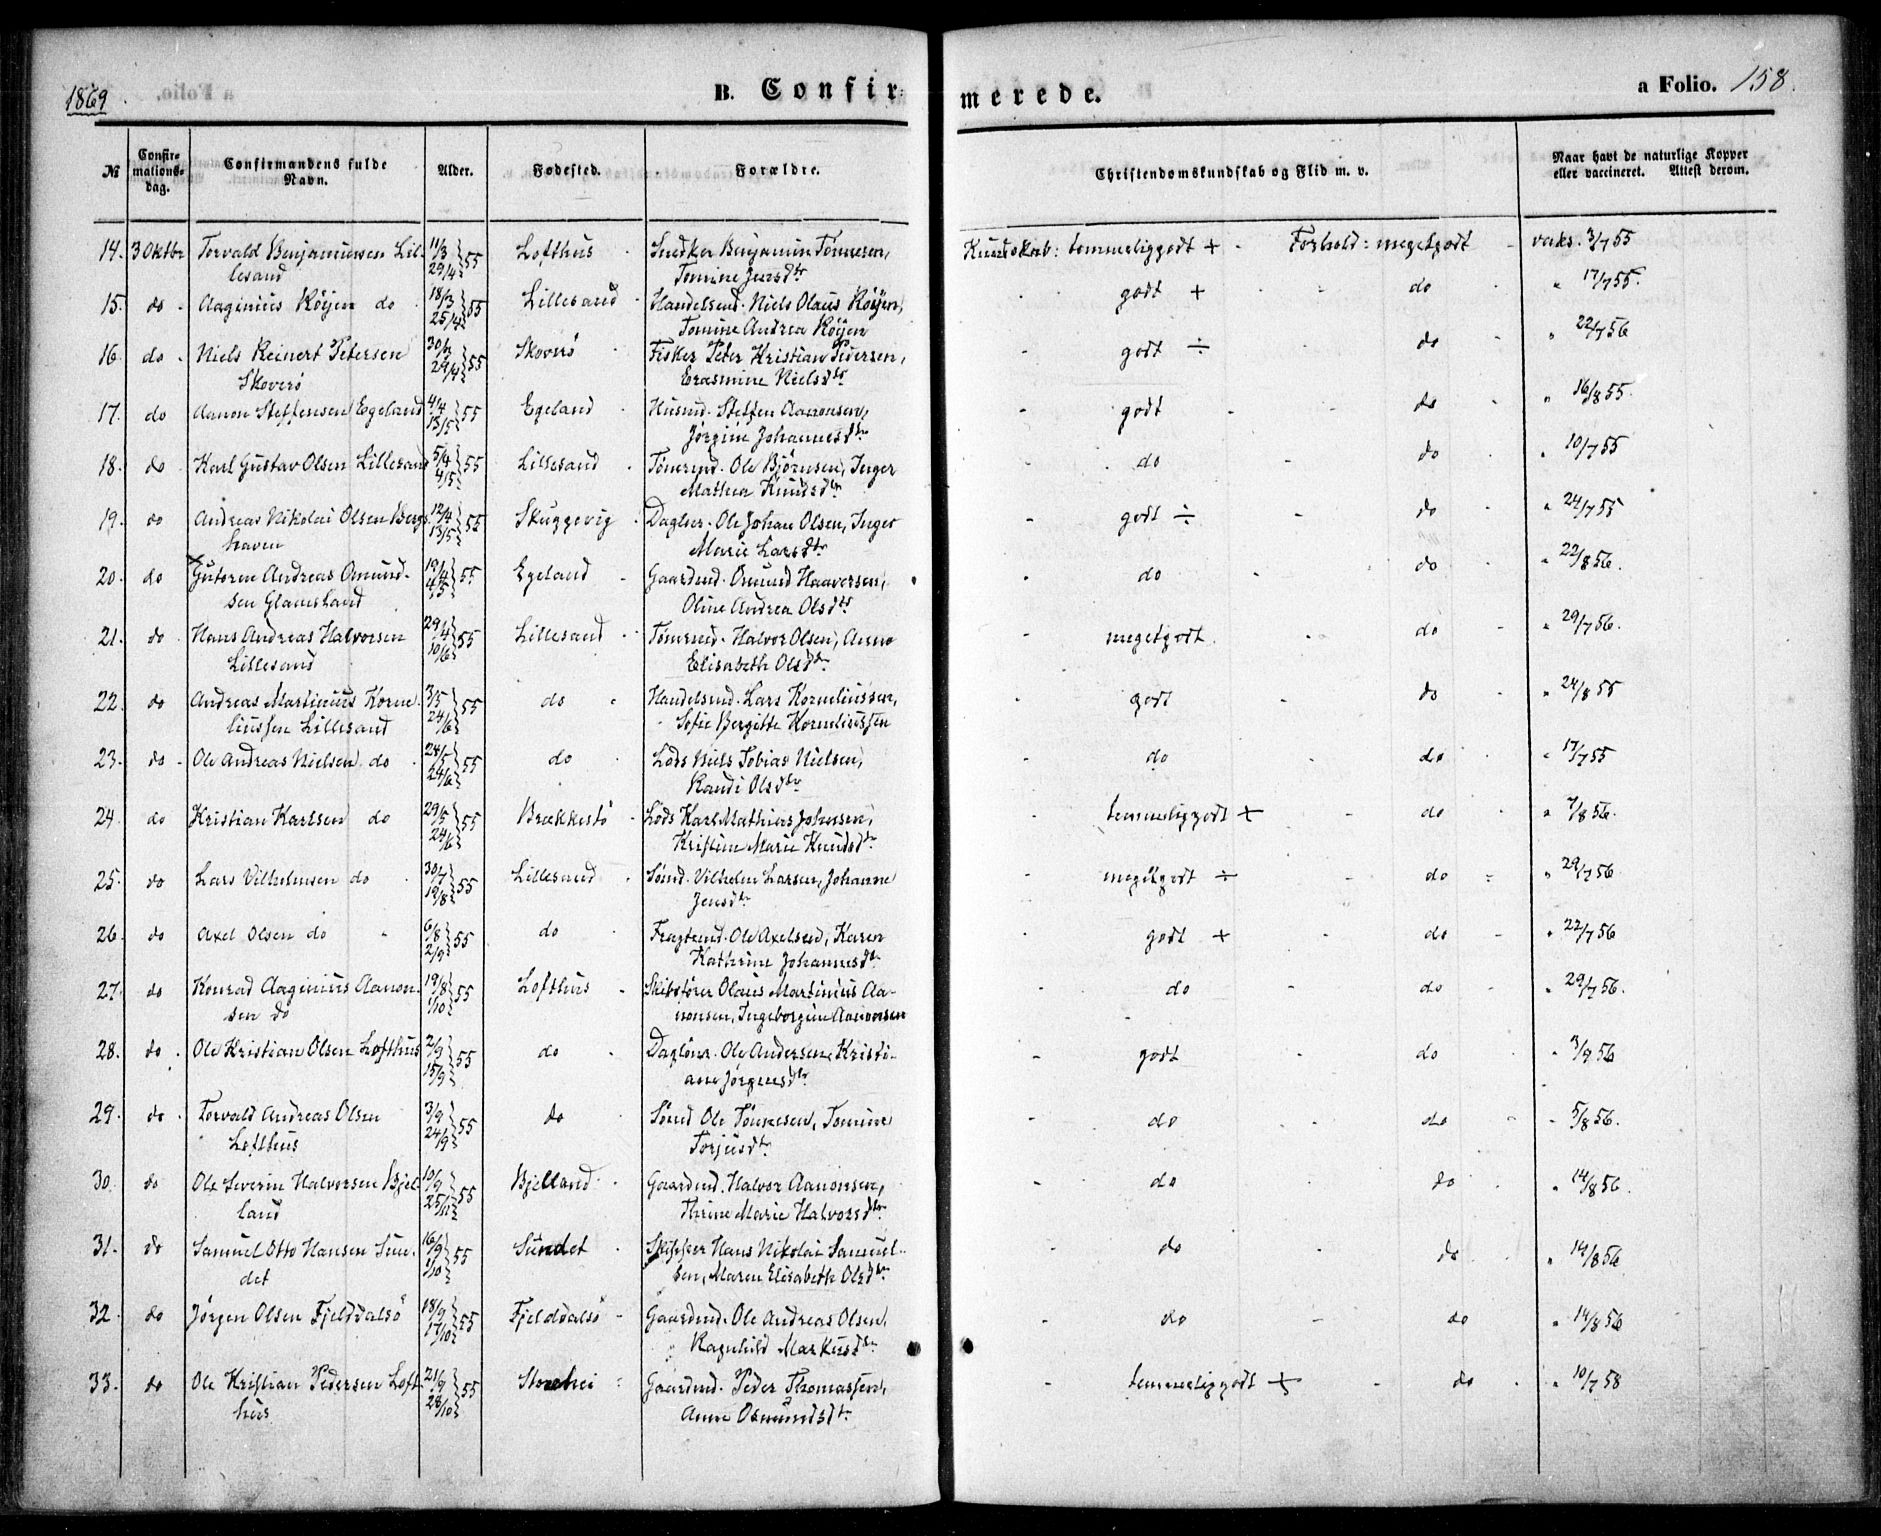 1869
B. Confir-
merede.
a Folio. 158.
№ Confir-mations-dag. Confirmandens fulde Navn. Alder. Fødested. Forældre. Christendomskundskab og Flid m. v. Naar havt de naturlige Kopper eller vaccineret. Attest derom.
14. 3 Oktbr Torvald Benjaminsen Lil- 11/3 29/4 } 55 Lofthus Snedker Benjamin Tønnesen, Kundskab: temmeliggodt + - Forhold: megetgodt - vaks. 3/7 55
lesand Tomine Jensdtr
15. do Aagenius Röijen do 18/3 25/4 } 55 Lillesand Handelsmd. Niels Olaus Röijen, godt + do " 17/7 55.
Tomine Andrea Röijen
16. do Niels Reinert Petersen 30/3 29/4 } 55 Skoverö Fisker Peter Kristian Pedersen, godt ÷ do " 22/7 56
Skoverö Erasmine Nielsdtr
17. do Aanon Steffensen Egeland 4/4 13/5 } 55 Egeland Husmd. Steffen Aanonsen, godt do " 16/8 55.
Jørgine Johannesdtr
18. do Karl Gustav Olsen Lillesand 5/4 4/5 } 55 Lillesand Tömrmd. Ole Bjørnsen, Inger do do " 10/7 55
Mathea Knudsdtr
19. do Andreas Nikolai Olsen Berge 12/4 13/5 } 55 Skuggevig Daglnr. Ole Johan Olsen, Inger godt ÷ do " 24/7 55
haven Marie Larsdtr
20. do Gutorm Andreas Omund- 19/4 4/5 } 55 Egeland Gaardmd. Omund Haaversen, do do " 22/8 56.
sen Glamsland Oline Andrea Olsdtr
21. do Hans Andreas Halvorsen 29/4 10/6 } 55 Lillesand Tømrmd. Halvor Olsen, Anne megetgodt do " 29/7 56.
Lillesand Elisabeth Olsdtr.
22. do Andreas Martinius Korne 3/5 24/6 } 55 do Handelsmd. Lars Korneliussen, godt do " 24/8 55
liussen Lillesand Sofie Bergitte Korneliussen
23. do Ole Andreas Nielsen do 24/5 24/6 } 55 do Lods Niels Tobias Nielsen, do do " 17/7 55
Randi Olsdtr
24. do Kristian Karlsen do 29/5 24/6 } 55 Brækkestö Lods Karl Mathias Johnsen, temmeliggodt + do " 7/8 56.
Kristine Marie Knudsdtr.
25. do Lars Vilhelmsen do 30/7 19/8 } 55 Lillesand Sömd. Vilhelm Larsen, Johanne megetgodt ÷ do " 29/7 56.
Jensdtr
26. do Axel Olsen do 6/8 2/9 } 55 do Fragtmd. Ole Axelsen, Karen godt + do " 22/7 56
Kathrine Johannesdtr.
27. do Konrad Aagenius Aanon- 19/8 1/10 } 55 Lofthus Skibsfører Olaus Martinius Aa- do do " 29/7 56.
sen do nonsen, Ingeborgine Aanonsen
28. do Ole Kristian Olsen Lofthus 2/9 15/9 } 55 do Daglönr. Ole Andersen, Kristi- godt do " 3/9 56
ane Jørgensdtr.
29. do Torvald Andreas Olsen 3/9 24/9 } 55 do Sömd Ole Tönnesen, Tomine do do " 5/8 56.
Lofthus Torjusdtr.
30. do Ole Severin Halvorsen Bjel- 10/9 25/11 } 55 Bjelland Gaardmd. Halvor Aanonsen, do do " 14/8 56.
land Thrine Marie Halvorsdtr.
31. do Samuel Otto Hansen Sun- 16/9 1/10 } 55 Sundet Skipper Hans Nikolai Samuel- do do " 14/8 56
det sen, Maren Elisabeth Olsdtr.
32. do Jørgen Olsen Fjelddalsö 18/9 17/10 } 55 Fjelddalsö Gaardmd. Ole Andreas Olsen, do do " 14/8 56
Ragnhild Markusdtr.
33. do Ole Kristian Pedersen Loft- 21/9 28/10 } 55 Storehei Gaardmd. Peder Thomassen, temmeliggodt + do " 10/7 58
hus Anne Osmundsdtr.